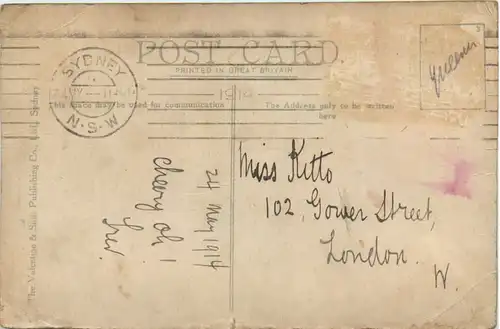 POST CARD
PRINTED IN GREAT BRITAIN
SYDNEY
N.S.W
1914
This space may be used for communication
The Address only to be written
here
The Valentine & Sons Publishing Co., Ltd., Sydney
24 May 1914
cheery oh!
Trev.
Miss Kitto
102, Gower Street,
London.
W.